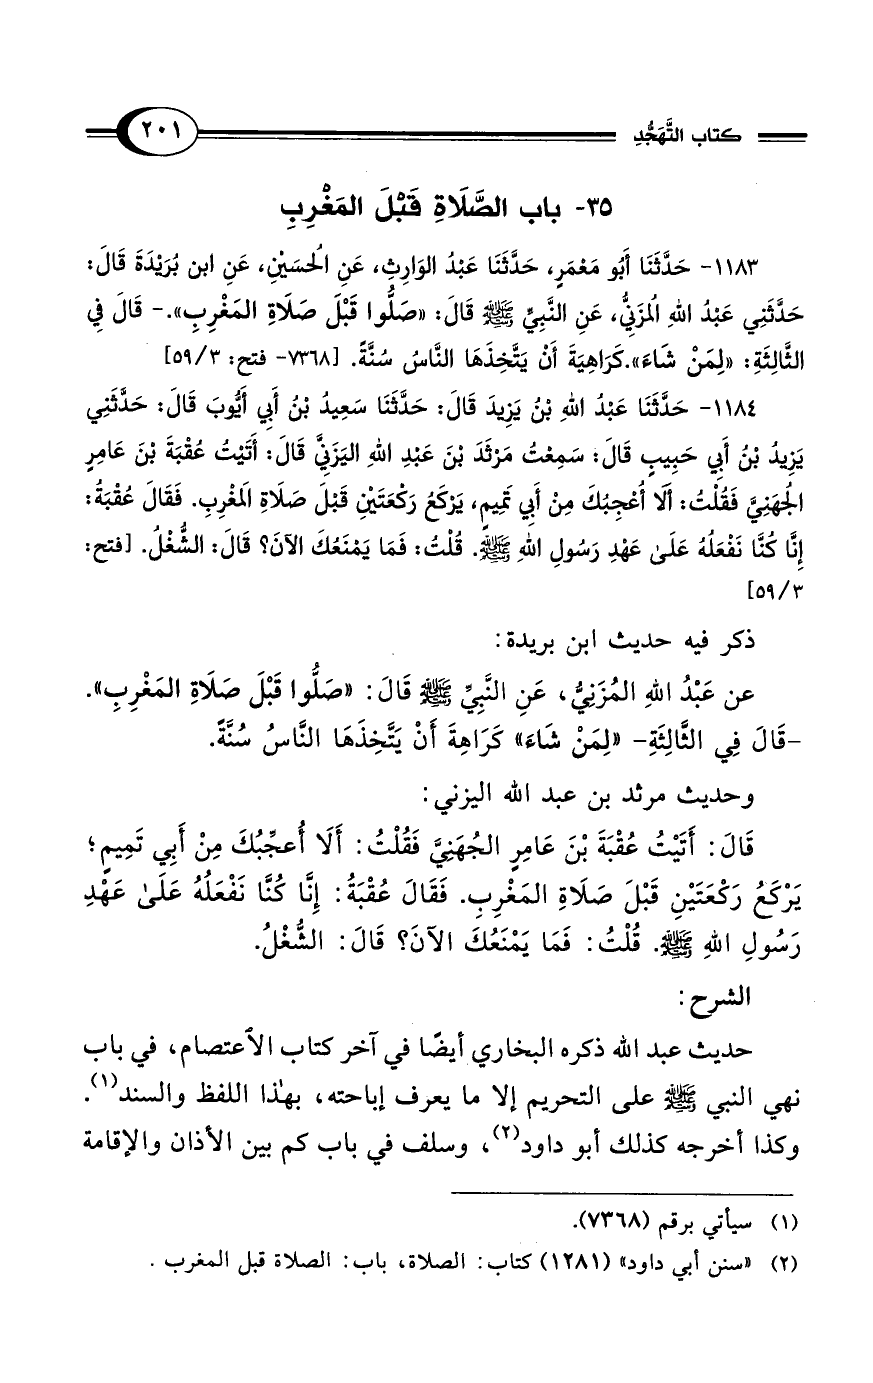 كتاب التَّهَجُّدِ ٢٠١
٣٥- باب الصَّلَاةِ قَبْلَ المَغْرِبِ
١١٨٣- حَدَّثَنَا أَبُو مَعْمَرٍ، حَدَّثَنَا عَبْدُ الوَارِثِ، عَنِ الحُسَيْنِ، عَنِ ابن بُرَيْدَةَ قَالَ:
حَدَّثَنِي عَبْدُ اللهِ المُزَنِيُّ، عَنِ النَّبِيِّ ﷺ قَالَ: «صَلُّوا قَبْلَ صَلَاةِ المَغْرِبِ».- قَالَ فِي
الثَّالِثَةِ: «لِمَنْ شَاءَ».كَرَاهِيَةَ أَنْ يَتَّخِذَهَا النَّاسُ سُنَّةً. [٧٣٦٨- فتح: ٥٩/٣]
١١٨٤- حَدَّثَنَا عَبْدُ اللهِ بْنُ يَزِيدَ قَالَ: حَدَّثَنَا سَعِيدُ بْنُ أَبِي أَيُّوبَ قَالَ: حَدَّثَنِي
يَزِيدُ بْنُ أَبِي حَبِيبٍ قَالَ: سَمِعْتُ مَرْثَدَ بْنَ عَبْدِ اللهِ اليَزَنِيَّ قَالَ: أَتَيْتُ عُقْبَةَ بْنَ عَامِرٍ
الجُهَنِيَّ فَقُلْتُ: أَلَا أُعْجِبُكَ مِنْ أَبِي تَمِيمٍ، يَرْكَعُ رَكْعَتَيْنِ قَبْلَ صَلَاةِ المَغْرِبِ. فَقَالَ عُقْبَةُ:
إِنَّا كُنَّا نَفْعَلُهُ عَلَىٰ عَهْدِ رَسُولِ اللهِ ﷺ. قُلْتُ: فَمَا يَمْنَعُكَ الآنَ؟ قَالَ: الشُّغْلُ. [فتح:
٥٩/٣]
ذكر فيه حديث ابن بريدة:
عن عَبْدُ اللهِ المُزَنِيُّ، عَنِ النَّبِيِّ ﷺ قَالَ: «صَلُّوا قَبْلَ صَلَاةِ المَغْرِبِ».
-قَالَ فِي الثَّالِثَةِ- «لِمَنْ شَاءَ» كَرَاهِةَ أَنْ يَتَّخِذَهَا النَّاسُ سُنَّةً.
وحديث مرثد بن عبد الله اليزني:
قَالَ: أَتَيْتُ عُقْبَةَ بْنَ عَامِرٍ الجُهَنِيَّ فَقُلْتُ: أَلَا أُعَجِّبُكَ مِنْ أَبِي تَمِيمٍ؛
يَرْكَعُ رَكْعَتَيْنِ قَبْلَ صَلَاةِ المَغْرِبِ. فَقَالَ عُقْبَةُ: إِنَّا كُنَّا نَفْعَلُهُ عَلَىٰ عَهْدِ
رَسُولِ اللهِ ﷺ. قُلْتُ: فَمَا يَمْنَعُكَ الآنَ؟ قَالَ: الشُّغْلُ.
الشرح:
حديث عبد الله ذكره البخاري أيضًا في آخر كتاب الاعتصام، في باب
نهي النبي ﷺ على التحريم إلا ما يعرف إباحته، بهٰذا اللفظ والسند(١).
وكذا أخرجه كذلك أبو داود(٢)، وسلف في باب كم بين الأذان والإقامة
(١) سيأتي برقم (٧٣٦٨).
(٢) «سنن أبي داود» (١٢٨١) كتاب: الصلاة، باب: الصلاة قبل المغرب .